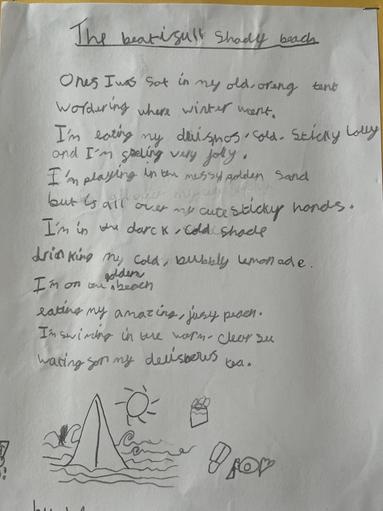 The beatisull Shady beach
Ones I was Sat in my old, oreng tent
wordering where winter went.
I'm eating my delishos, cold, sticky lolly
and I'm feeling very joly.
I'm playing in the messy golden sand
but its all over my cute sticky hands.
I'm in the darck, cold shade
drinking my cold, bubbly lemonade.
I'm on the golden beach
eating my amazing, jusy peach.
I'm swiming in the warm, clear see
wating for my delisbous tea.